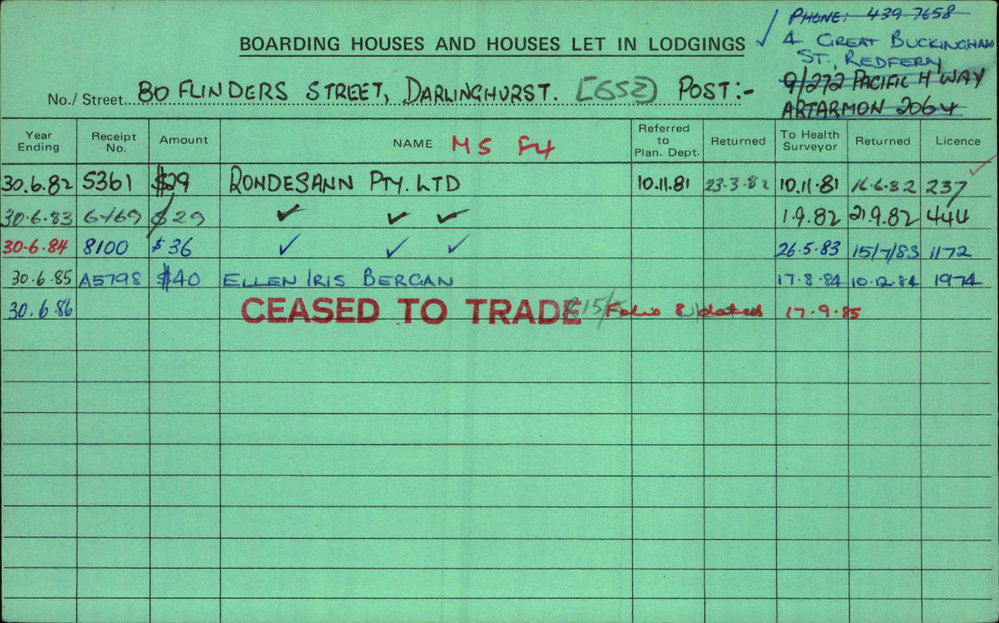 PHONE: 439 7658
BOARDING HOUSES AND HOUSES LET IN LODGINGS ✓ 4 GREAT BUCKINGHAM
ST., REDFERN
No./ Street 80 FLINDERS STREET, DARLINGHURST. [652] POST:- 9/272 PACIFIC H'WAY
ARTARMON 2064
Year Ending Receipt No. Amount NAME MS F4 Referred to Plan. Dept. Returned To Health Surveyor Returned Licence
30.6.82 5361 $29 RONDESANN PTY. LTD 10.11.81 23-3-82 10.11.81 16.6.82 237
30.6.83 6469 $29 ✓ ✓ ✓ 1.9.82 21.9.82 444
30.6.84 8100 $36 ✓ ✓ ✓ 26.5.83 15/7/83 1172
30.6.85 A5798 $40 ELLEN IRIS BERGAN 17.8.84 10.12.84 1974
30.6.86 CEASED TO TRADE Folio 17.9.85